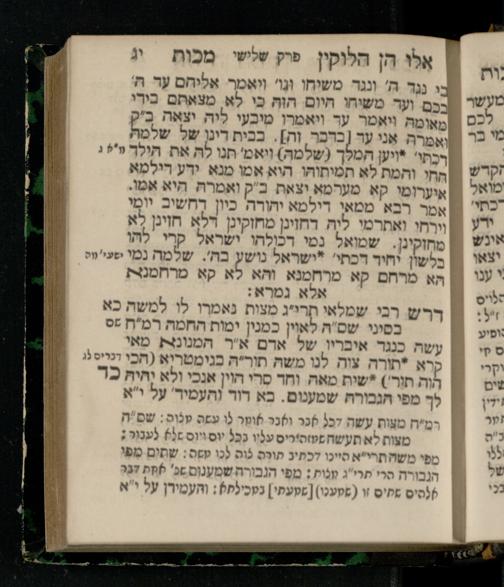 אלו הן הלוקין פרק שלישי מכות יג
בי נגד ה' ונגד משיחו וגו' ויאמר אליהם עד ה'
בכם ועד משיחו היום הזה כי לא מצאתם בידי
מאומה ויאמר עד ויאמרו מיבעי ליה יצאה ב"ק
ואמרה אני עד [בדבר זה]. בבית דינו של שלמה
דכתי' *ויען המלך (שלמה) ויאמ' תנו לה את הילד מ"א ג
החי והמת לא תמיתוהו היא אמו מנא ידע דילמא
איערומי קא מערמא יצאת ב"ק ואמרה היא אמו.
אמר רבא ממאי דילמא יהודה כיון דחשיב יומי
וירחי ואתרמי ליה דחזינן מחזקינן דלא חזינן לא
מחזקינן. שמואל נמי דכולהו ישראל קרי להו
בלשון יחיד דכתי' *ישראל נושע בה'. שלמה נמי ישעי' מה
הא מרחם קא מרחמנא והא לא קא מרחמנא
אלא גמרא:
דרש רבי שמלאי תרי"ג מצות נאמרו לו למשה כא
בסיני שס"ה לאוין כמנין ימות החמה רמ"ח שם
עשה כנגד איבריו של אדם א"ר המנונא מאי
קרא *תורה צוה לנו משה תור"ה בגימטריא (הכי דברים לג
הוה תורי') *שית מאה וחד סרי הוין אנכי ולא יהיה כד
לך מפי הגבורה שמענום. בא דוד והעמיד' על י"א
רמ"ח מצות עשה דכל אבר ואבר אומר לו עשה מצוה: שס"ה
מצות לא תעשה שמזהירים עליו בכל יום ויום שלא לעבור:
מפי משה תרי"א היינו דכתיב תורה צוה לנו משה: שתים מפי
הגבורה הרי תרי"ג מצות: מפי הגבורה שמענום שנ' אחת דבר
אלהים שתים זו (שמענו) [שמעתי] במכילתא: והעמידן על י"א